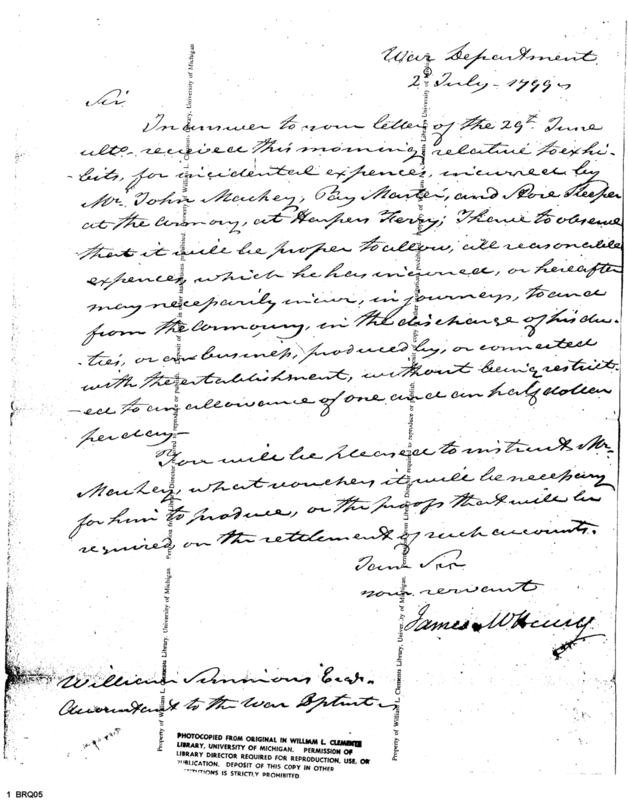 War Department
2d July 1799
Sir
In answer to your letter of the 29th June
ulto. received this morning relative to exhi-
-bits, for incidental expences, incurred by
Mr. John Mackey, Pay Master, and Store Keeper
at the Armory, at Harpers Ferry; I have to observe
that it will be proper to allow, all reasonable
expences, which he has incurred, or hereafter
may necessarily incur, in journeys, to and
from the Armoury, in the discharge of his du-
-ties, or on business, produced by, or connected
with the establishment, without being restrict-
-ed to an allowance of one and an half dollar
per day-
You will be pleased to instruct Mr.
Mackey, what vouchers it will be necessary
for him to produce, or the proofs that will be
required on the settlement of such accounts.
I am Sir
your servant
James McHenry
William Simmons Esqr.
Accountant to the War Dptmt
Property of William L. Clements Library, University of Michigan. Permission from Library Director required to reproduce or publish. Deposit of this copy in other institutions prohibited.
PHOTOCOPIED FROM ORIGINAL IN WILLIAM L. CLEMENTS
LIBRARY, UNIVERSITY OF MICHIGAN. PERMISSION OF
LIBRARY DIRECTOR REQUIRED FOR REPRODUCTION, USE, OR
PUBLICATION. DEPOSIT OF THIS COPY IN OTHER
INSTITUTIONS IS STRICTLY PROHIBITED.
1 BRQ05